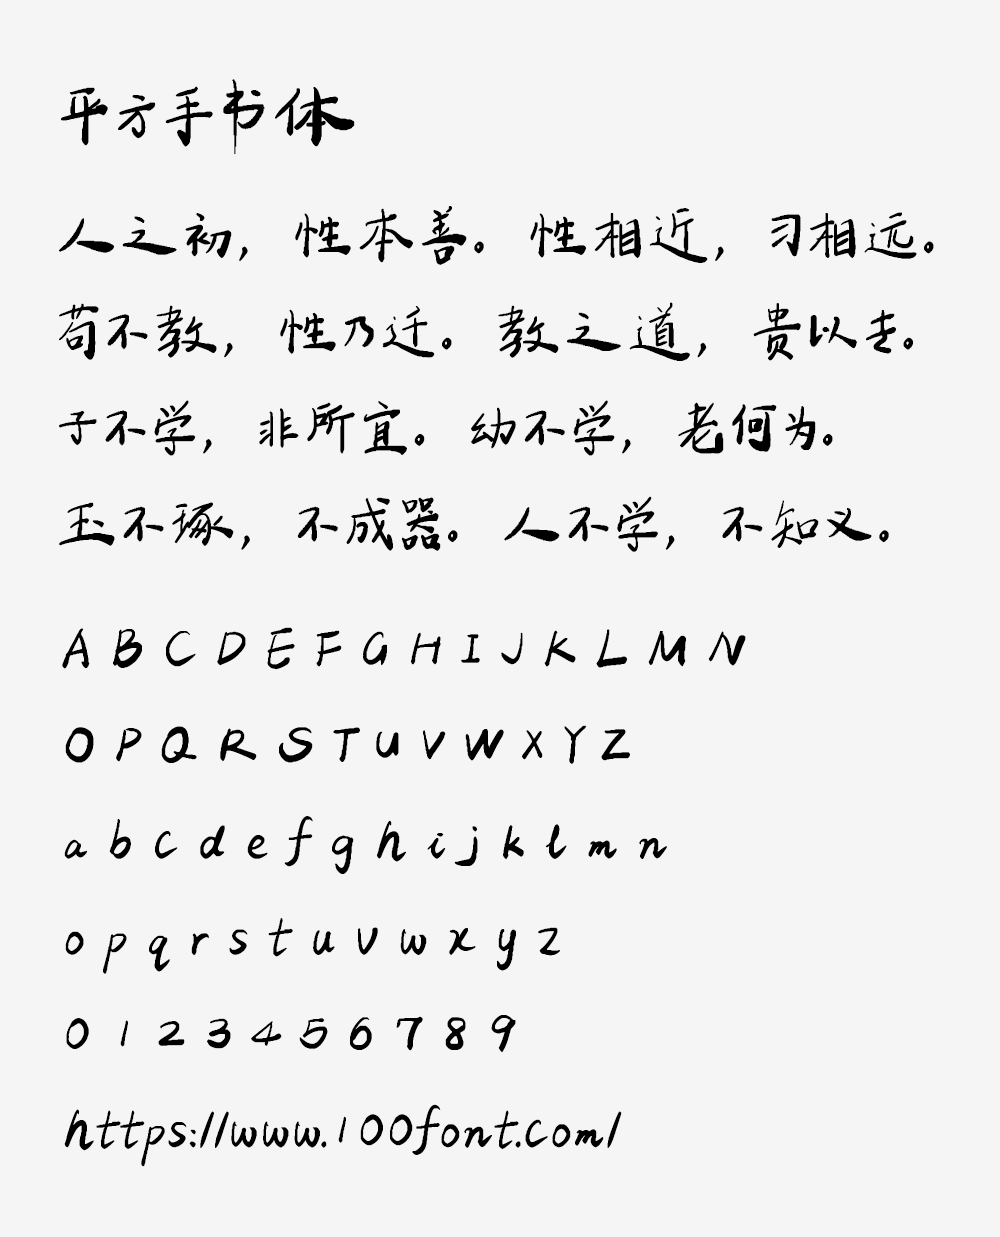 平方手书体
人之初，性本善。性相近，习相远。
苟不教，性乃迁。教之道，贵以专。
子不学，非所宜。幼不学，老何为。
玉不琢，不成器。人不学，不知义。
A B C D E F G H I J K L M N
O P Q R S T U V W X Y Z
a b c d e f g h i j k l m n
o p q r s t u v w x y z
0 1 2 3 4 5 6 7 8 9
https://www.100font.com/